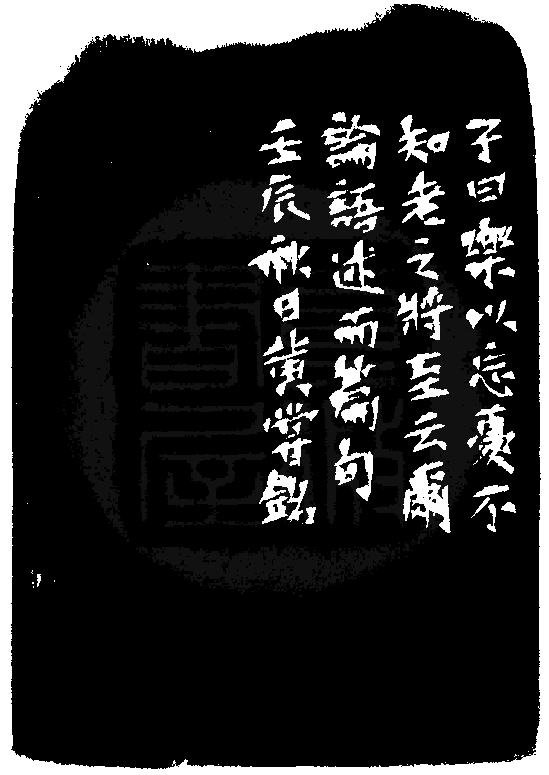 子曰樂以忘憂不
知老之將至云爾
論語述而篇句
壬辰秋日黄嘗銘